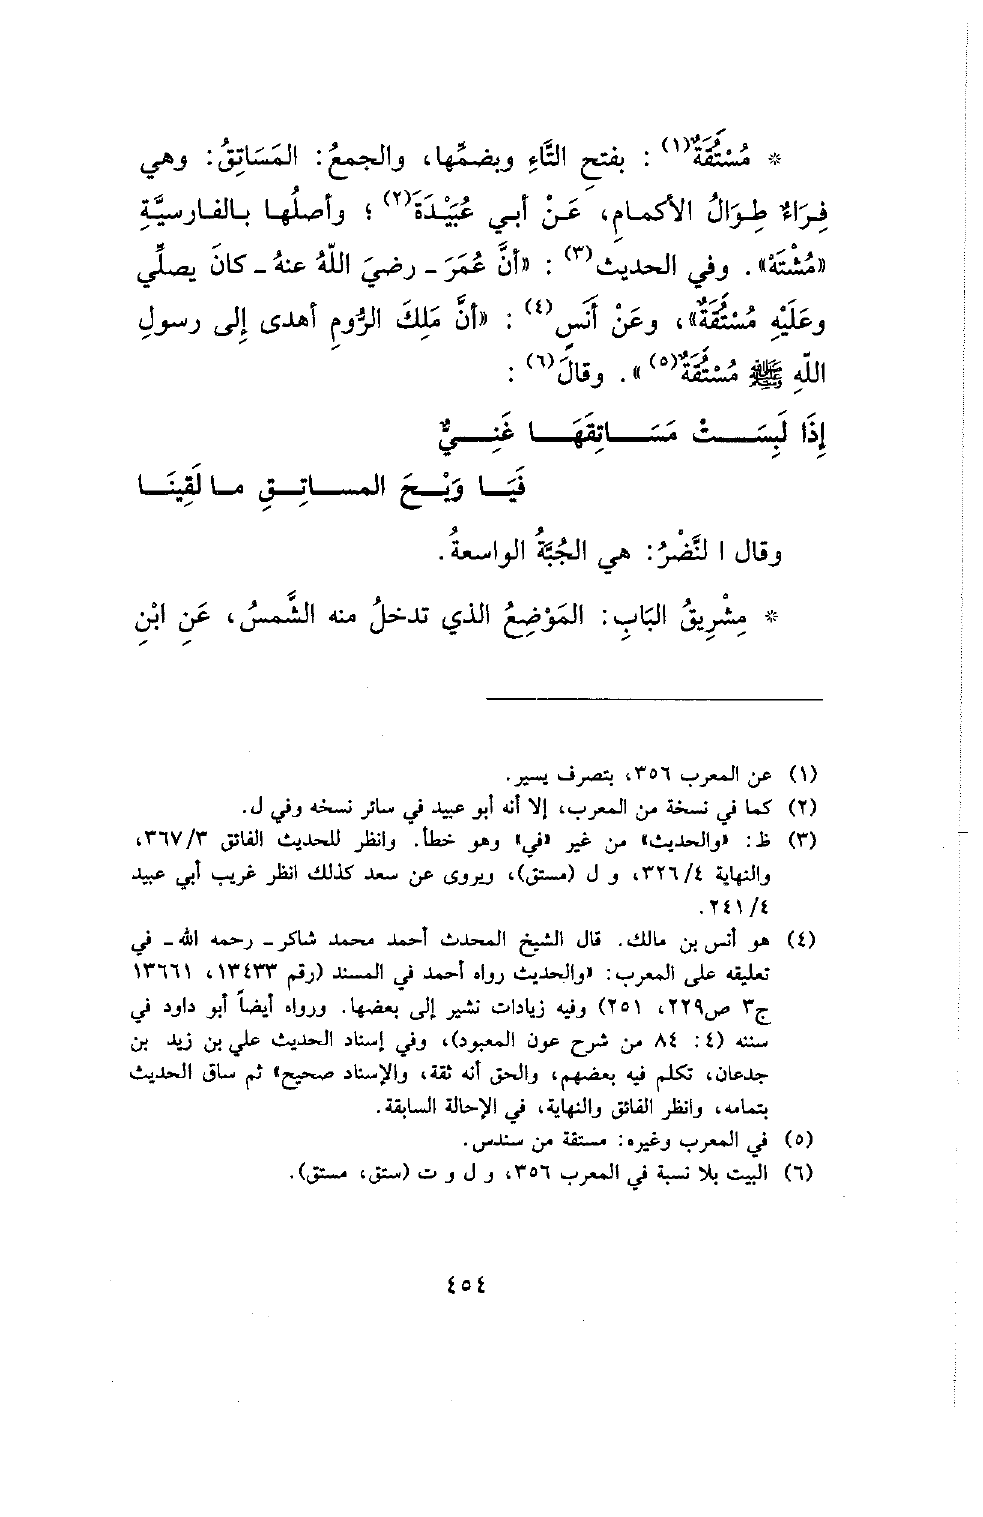 * مُسْتَُقَةٌ(١) : بفتحِ التَّاءِ وبضمِّها، والجمعُ: المَسَاتِقُ: وهي
فِرَاءٌ طِوَالُ الأكمامِ، عَنْ أبي عُبَيْدَةَ(٢) ؛ وأصلُها بالفارسيَّةِ
«مُشْتَهْ». وفي الحديث(٣) : «أنَّ عُمَرَ - رضيَ اللّهُ عنهُ - كانَ يصلِّي
وعَلَيْهِ مُسْتَُقَةٌ»، وعَنْ أَنَسٍ(٤) : «أنَّ مَلِكَ الرُّومِ أهدى إلى رسولِ
اللّهِ ﷺ مُسْتَُقَةً(٥) ». وقالَ(٦) :
إِذَا لَبِسَتْ مَسَاتِقَهَا غَنِيٌّ
فَيَا وَيْحَ المساتِقِ ما لَقِينَا
وقال النَّضْرُ: هي الجُبَّةُ الواسعةُ.
* مِشْرِيقُ البَابِ: المَوْضِعُ الذي تدخلُ منه الشَّمسُ، عَنِ ابْنِ
(١) عن المعرب ٣٥٦، بتصرف يسير.
(٢) كما في نسخة من المعرب، إلا أنه أبو عبيد في سائر نسخه وفي ل.
(٣) ظ: «والحديث» من غير «في» وهو خطأ. وانظر للحديث الفائق ٣٦٧/٣،
والنهاية ٣٢٦/٤، و ل (مستق)، ويروى عن سعد كذلك انظر غريب أبي عبيد
٢٤١/٤.
(٤) هو أنس بن مالك. قال الشيخ المحدث أحمد محمد شاكر - رحمه الله - في
تعليقه على المعرب: «والحديث رواه أحمد في المسند (رقم ١٣٤٣٣، ١٣٦٦١
ج٣ ص٢٢٩، ٢٥١) وفيه زيادات نشير إلى بعضها. ورواه أيضاً أبو داود في
سننه (٤: ٨٤ من شرح عون المعبود)، وفي إسناد الحديث علي بن زيد بن
جدعان، تكلم فيه بعضهم، والحق أنه ثقة، والإسناد صحيح» ثم ساق الحديث
بتمامه، وانظر الفائق والنهاية، في الإحالة السابقة.
(٥) في المعرب وغيره: مستقة من سندس.
(٦) البيت بلا نسبة في المعرب ٣٥٦، و ل و ت (ستق، مستق).
٤٥٤